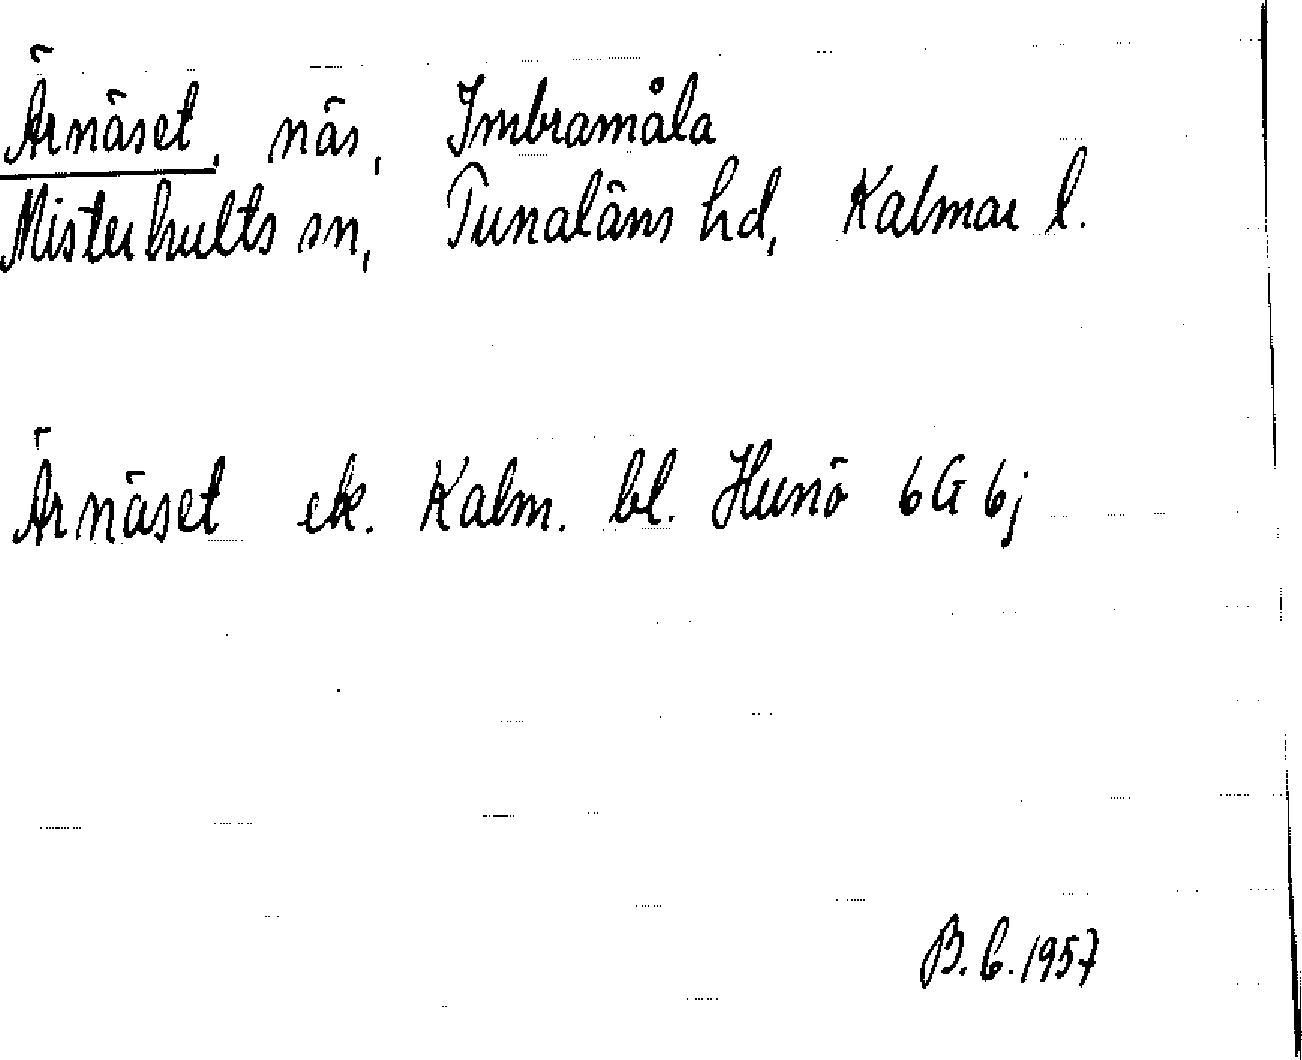 Ärnäset, näs, Imbramåla
Misterhults sn, Tunaläns hd, Kalmar l.
Ärnäset ek. Kalm. bl. Hunö 6G 6j
B. C. 1957